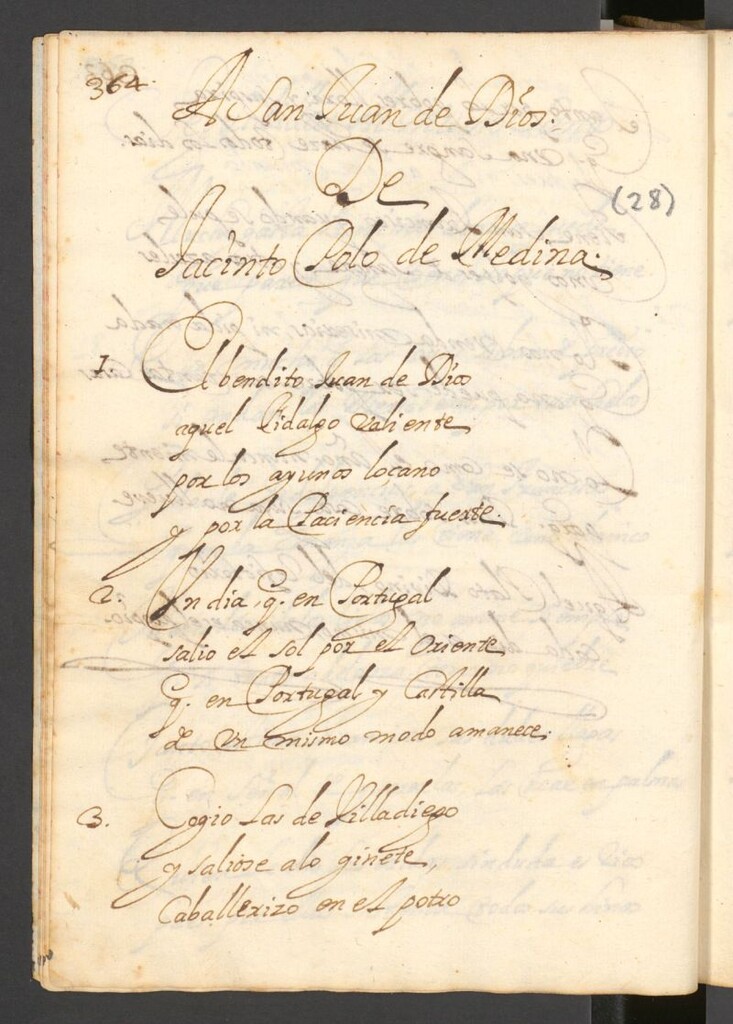 364.
A San Juan de Dios.
De
(28)
Jacinto Polo de Medina.
1. El bendito Juan de Dios
aquel hidalgo valiente
por los ayunos loçano
y por la Paciencia fuerte.
2. Un dia, q. en Portugal
salio el sol por el oriente
q. en Portugal y Castilla
de un mismo modo amanece.
3. Cogio Las de Villadiego
y saliose alo ginete,
Caballerizo en el potro